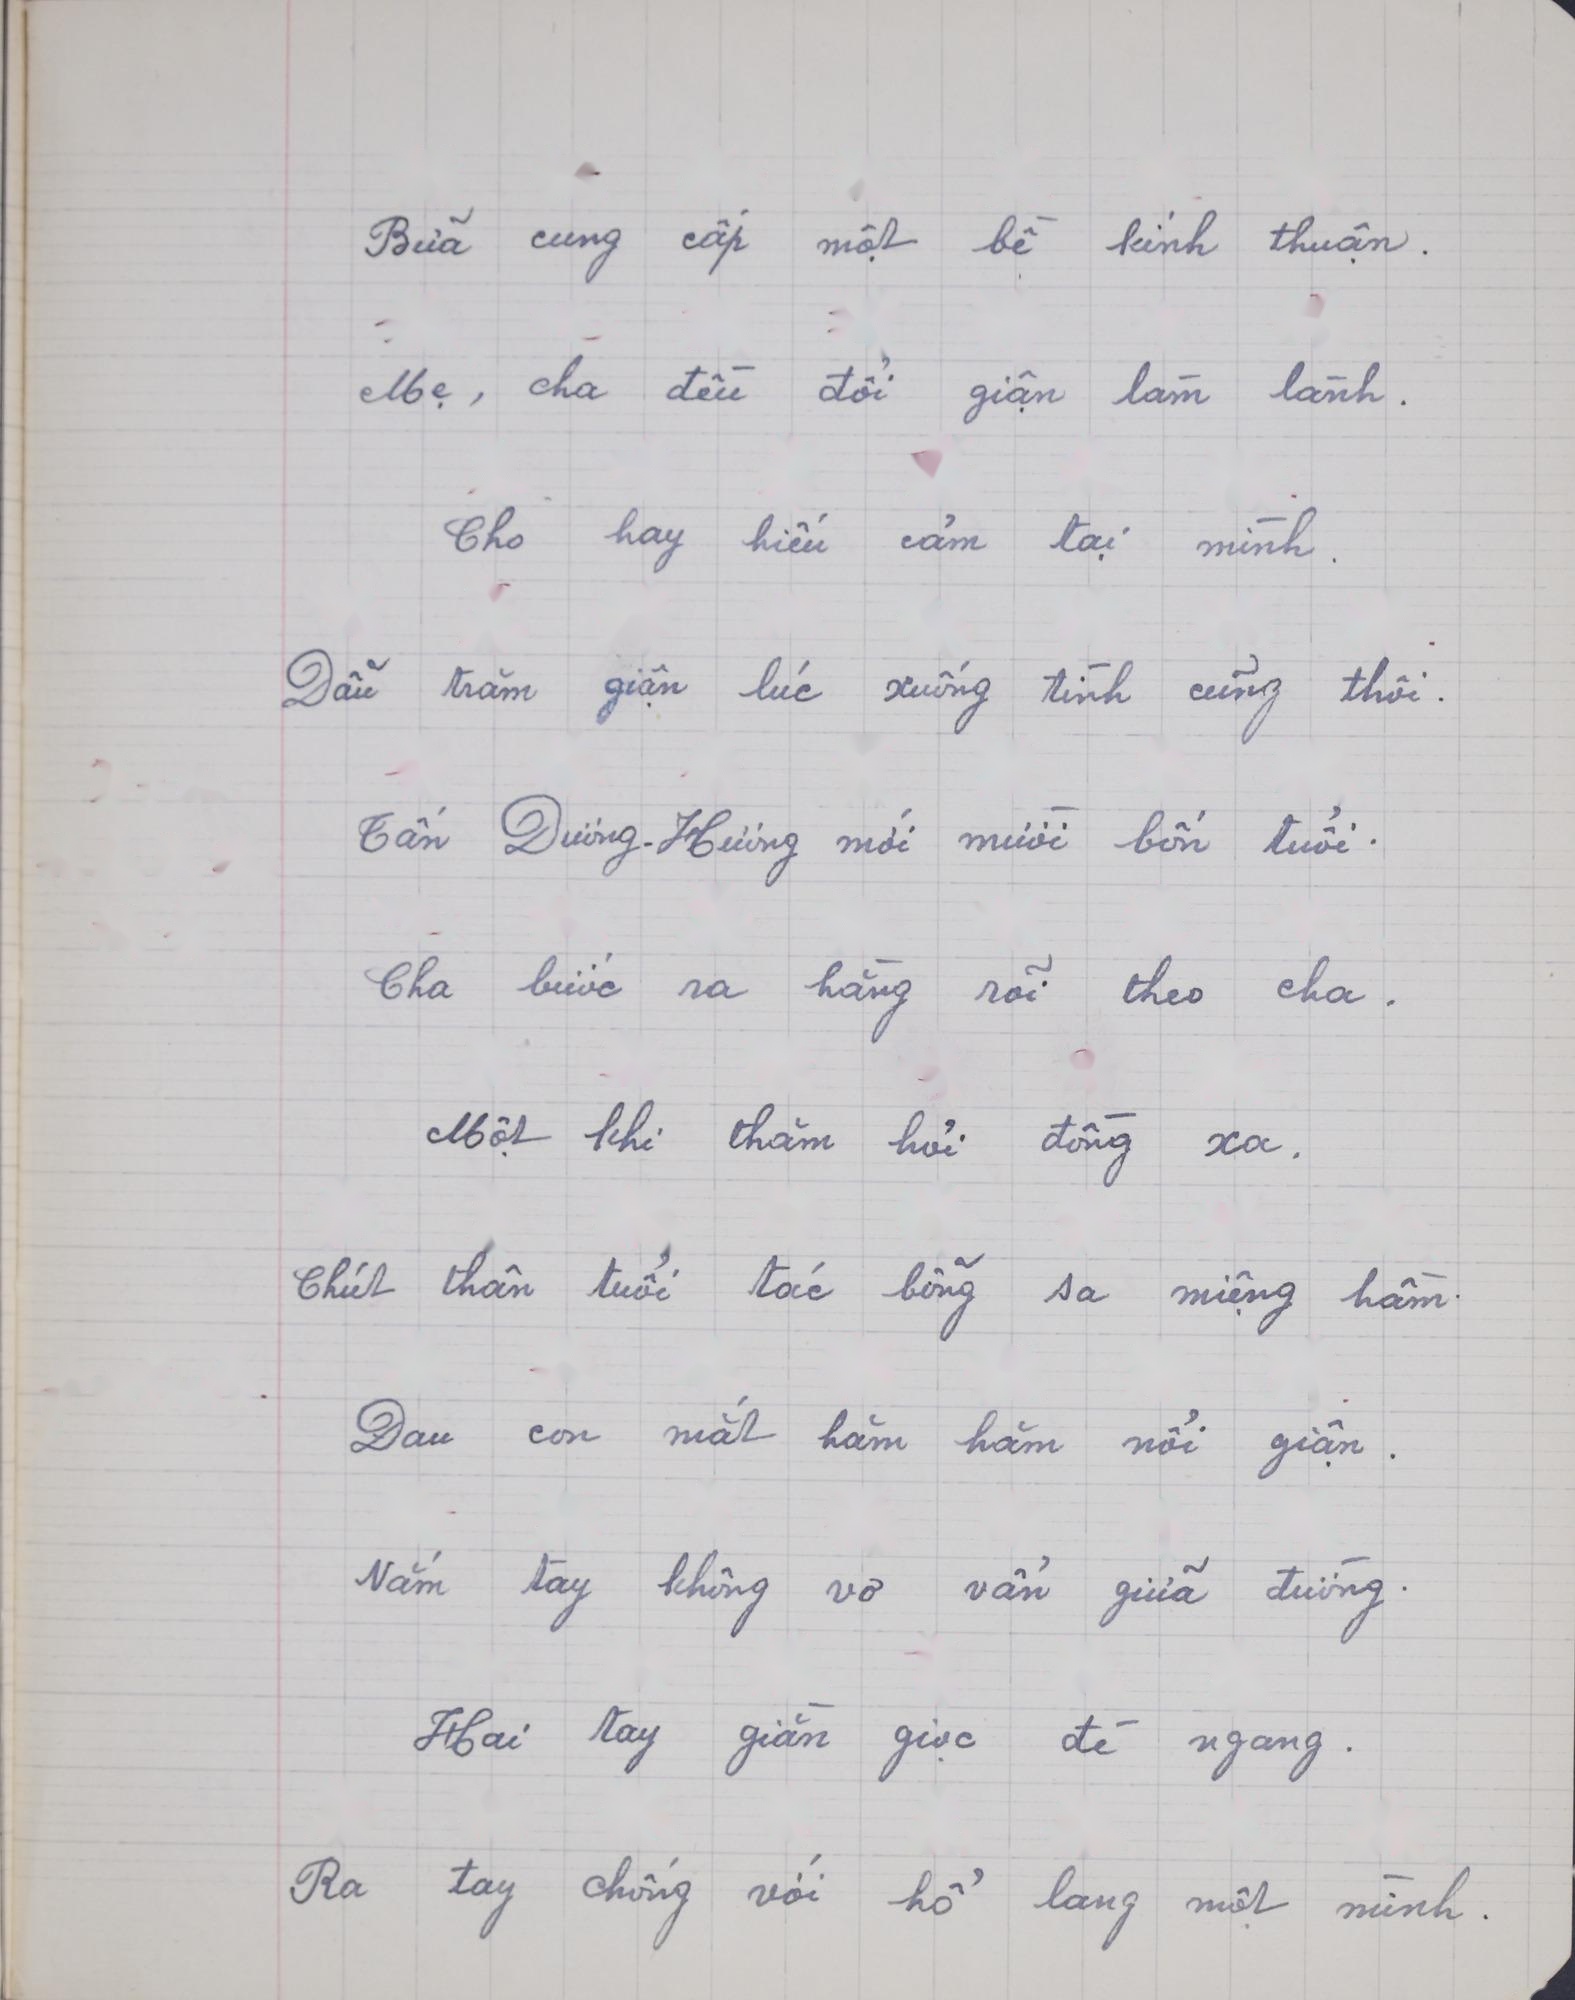 Bữa cung cấp một bề kính thuận.
Mẹ, cha đều đổi giận làm lành.
Cho hay hiếu cảm tại mình.
Dẫu trăm giận lúc xuống tình cũng thôi.
Tấn Dương-Hương mới mười bốn tuổi.
Cha bước ra hằng rỗi theo cha.
Một khi thăm hỏi đồng xa.
Chút thân tuổi tác bỗng sa miệng hầm.
Đau con mắt hăm hăm nổi giận.
Nắm tay không vơ vẩn giữa đường.
Hai tay giằn giọc đè ngang.
Ra tay chống với hổ lang một mình.